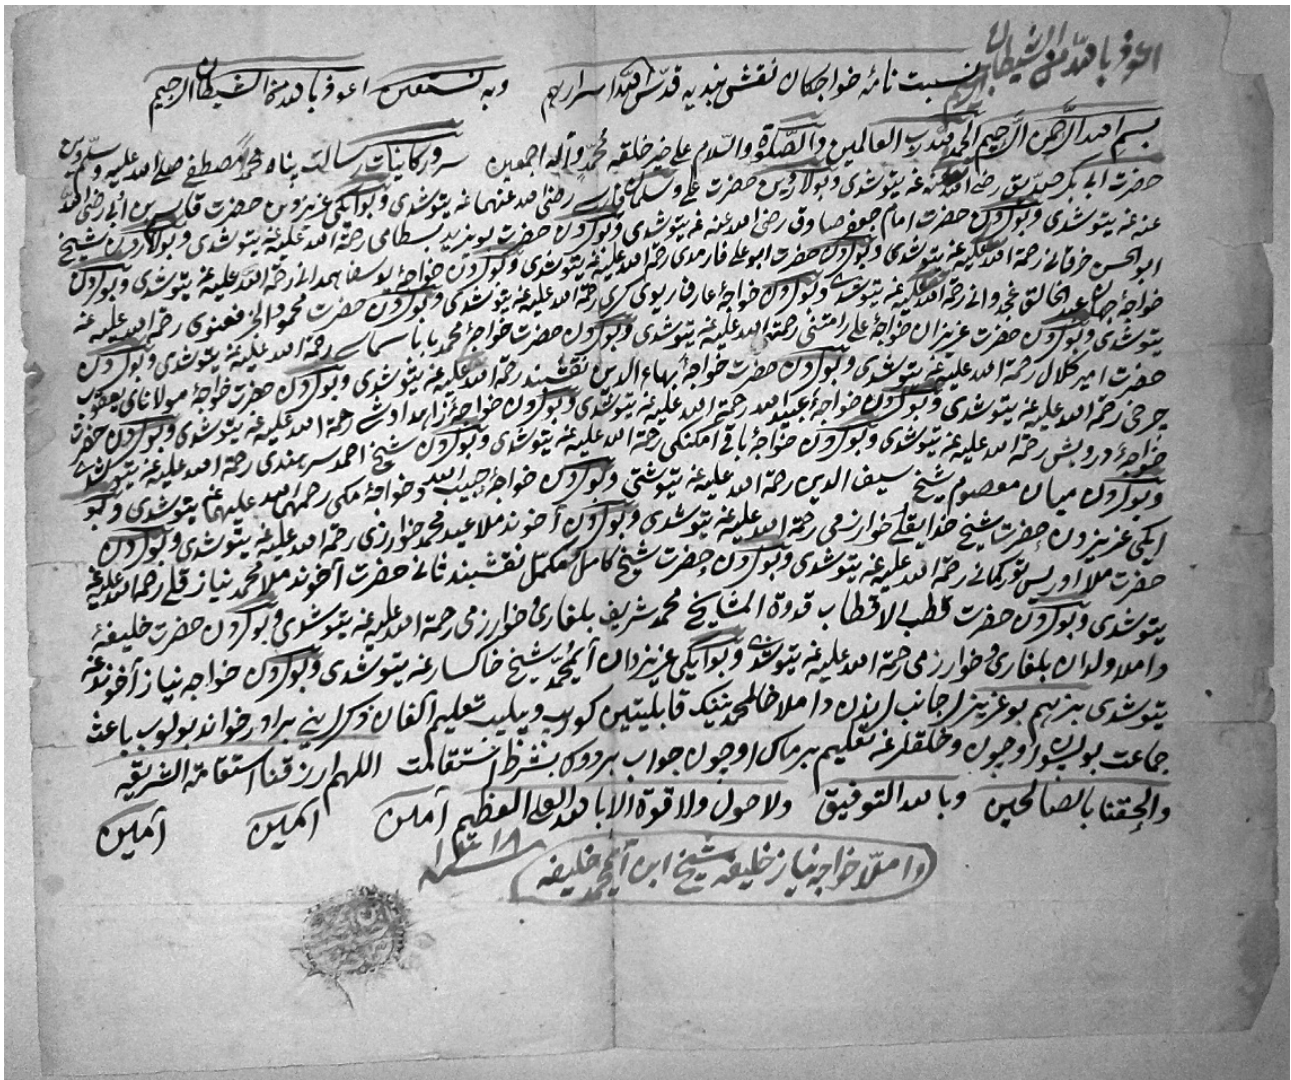 اعوذ بالله من الشیطان الرجیم
نسبت نامهٔ خواجکان نقشبندیه قدّس الله اسرارهم وبه نستعین اعوذ بالله من الشیطان الرجیم
بسم الله الرحمن الرحیم الحمد لله رب العالمین والصّلوة والسّلام علی خیر خلقه محمّد وآله اجمعین سرور کاینات رسالت پناه محمد مصطفی صلی الله علیه وسلّم دین
حضرت ابی بکر صدّیق رضی الله عنه غه یتوشدی وبولاردین حضرت علی وسلمان فارسی رضی الله عنهما غه یتوشدی وبو ایکی عزیزدین حضرت قاسم بن ابی رضی الله
عنه غه یتوشدی وبولردن حضرت امام جعفر صادق رضی الله عنه غه یتوشدی وبولردن حضرت بویزید بسطامی رحمة الله علیه غه یتوشدی وبولاردن شیخ
ابو الحسن خرقانی رحمة الله علیه غه یتوشدی وبولردن حضرت ابو علی فارمدی رحمة الله علیه غه یتوشدی وبولردن خواجهٔ یوسف همدانی رحمة الله علیه غه یتوشدی وبولردن
خواجهٔ جهان عبد الخالق غجدوانی رحمة الله علیه غه یتوشدی وبولردن خواجهٔ عارف ریوی کری رحمة الله علیه غه یتوشدی وبولردن حضرت محمود الخیر فغنوی رحمة الله علیه غه
یتوشدی وبولردن حضرت عزیزان خواجهٔ علی رامتنی رحمة الله علیه غه یتوشدی وبولردن حضرت خواجهٔ محمد بابا سماسی رحمة الله علیه غه یتوشدی وبولردن
حضرت امیر کلال رحمة الله علیه غه یتوشدی وبولردن حضرت خواجهٔ بهاء الدین نقشبند رحمة الله علیه غه یتوشدی وبولردن حضرت خواجهٔ مولانای یعقوب
چرخی رحمة الله علیه غه یتوشدی وبولردن خواجهٔ عبید الله رحمة الله علیه غه یتوشدی وبولردن خواجهٔ زاهد اوشی رحمة الله علیه غه یتوشدی وبولردن حضرت
خواجهٔ درویش رحمة الله علیه غه یتوشدی وبولردن خواجهٔ باقی امکنکی رحمة الله علیه غه یتوشدی وبولردن شیخ احمد سرهندی رحمة الله علیه غه یتوشدی
وبولردن میان معصوم شیخ سیف الدین رحمة الله علیه غه یتوشتی وبولردن خواجهٔ حبیب الله وخواجهٔ مکی رحمهما الله علیهما غه یتوشدی وبو
ایکی عزیزدن حضرت شیخ خدایقلی خوارزمی رحمة الله علیه غه یتوشدی وبولردن آخوند ملا عید محمد خوارزمی رحمة الله علیه غه یتوشدی وبولردن
حضرت ملا اوریس تورکمانی رحمة الله علیه غه یتوشدی وبولردن حضرت شیخ کامل مکمّل نقشبند ثانی حضرت آخوند ملا محمد نیاز قلی رحمة الله علیه غه
یتوشدی وبولردن حضرت قطب الاقطاب قدوة المشایخ محمد شریف بلغاری خوارزمی رحمة الله علیه غه یتوشدی وبولردن حضرت خلیفهٔ
داملا ولدان بلغاری خوارزمی رحمة الله علیه غه یتوشدی وبو ایکی عزیزدان آی محمد شیخ خاکسارغه یتوشدی وبولردن خواجه نیاز آخوندغه
یتوشدی بزهم بو عزیزلر جانب لریدن داملا خالمحمدنینک قابلیتین کوروب وبیلیب تعلیم القان ذکرلرینی برادر خواند بولوب باعث
جماعت بولسون اوچون وخلقلرغه تعلیم برماک اوچون جواب بردوک بشرط استقامت اللهم ارزقنا استقامة الشریقه
والحقنا بالصالحین وبالله التوفیق ولا حول ولا قوة الا بالله العلی العظیم آمین آمین آمین
داملّا خواجه نیاز خلیفه شیخ ابن آی محمد خلیفه